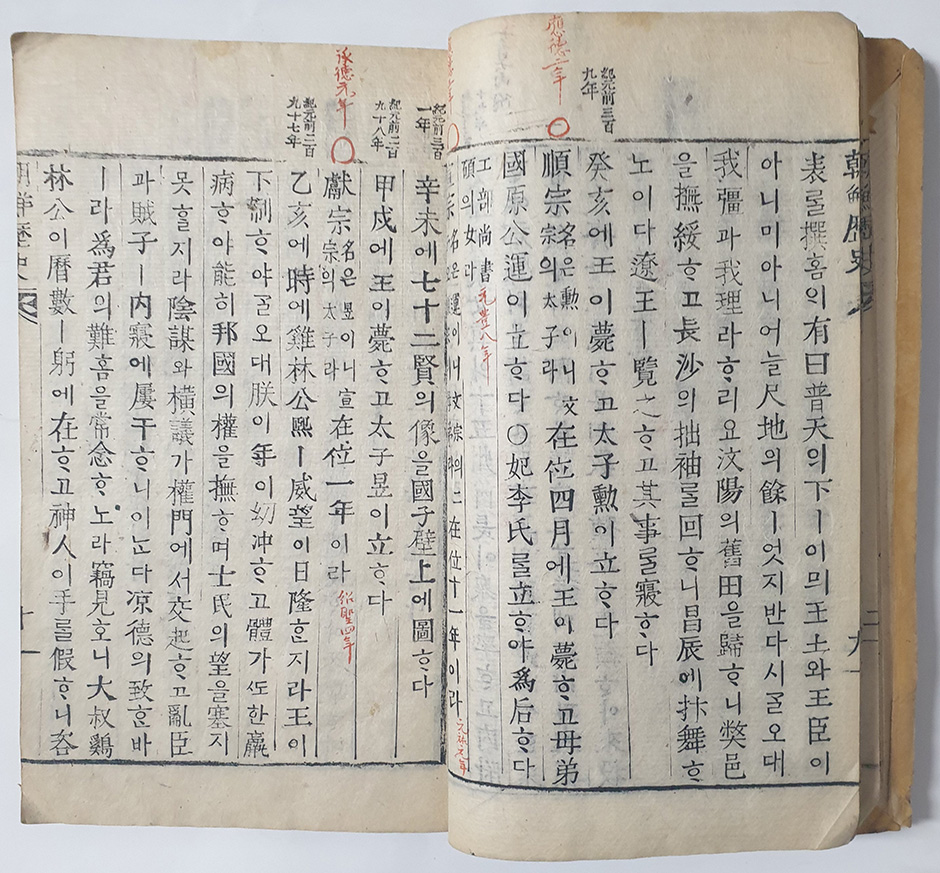 朝鮮歷史
二
九
應德二年
紀元前三百
九年
表ᄅᆞᆯ撰홈의有曰普天의下ㅣ이믜王土와王臣이
아니미아니어늘尺地의餘ㅣ엇지반다시ᄀᆞᆯ오대
我彊과我理라ᄒᆞ리요汶陽의舊田을歸ᄒᆞ니獘邑
을撫綏ᄒᆞ고長沙의拙袖ᄅᆞᆯ回ᄒᆞ니昌辰에抃舞ᄒᆞ
노이다遼王ㅣ覽之ᄒᆞ고其事ᄅᆞᆯ寢ᄒᆞ다
癸亥에王이薨ᄒᆞ고太子勳이立ᄒᆞ다
順宗名은勳이니文宗의太子라在位四月에王이薨ᄒᆞ고母弟
國原公運이立ᄒᆞ다〇妃李氏ᄅᆞᆯ立ᄒᆞ야爲后ᄒᆞ다
工部尙書
碩의女라
元豊八年
宗名은運이니文宗의二在位十一年이라
元祐元年
紀元前三百
一年
辛未에七十二賢의像을國子壁上에圖ᄒᆞ다
紀元前二百
九十八年
甲戌에王이薨ᄒᆞ고太子昱이立ᄒᆞ다
承德元年
獻宗名은昱이니宣宗의太子라在位一年이라
紹聖四年
紀元前二百
九十七年
乙亥에時에雞林公熙ㅣ威望이日隆ᄒᆞᆫ지라王이
下制ᄒᆞ야ᄀᆞᆯ오대朕이年이幼冲ᄒᆞ고體가ᄯᅩ한羸
病ᄒᆞ야能히邦國의權을撫ᄒᆞ며士民의望을塞지
못ᄒᆞᆯ지라陰謀와橫議가權門에서交起ᄒᆞ고亂臣
과賊子ㅣ內寢에屢干ᄒᆞ니이ᄂᆞᆫ다凉德의致ᄒᆞᆫ바
ㅣ라爲君의難홈을常念ᄒᆞ노라竊見호니大叔鷄
林公이曆數ㅣ躬에在ᄒᆞ고神人이手ᄅᆞᆯ假ᄒᆞ니咨
朝鮮歷史
十一